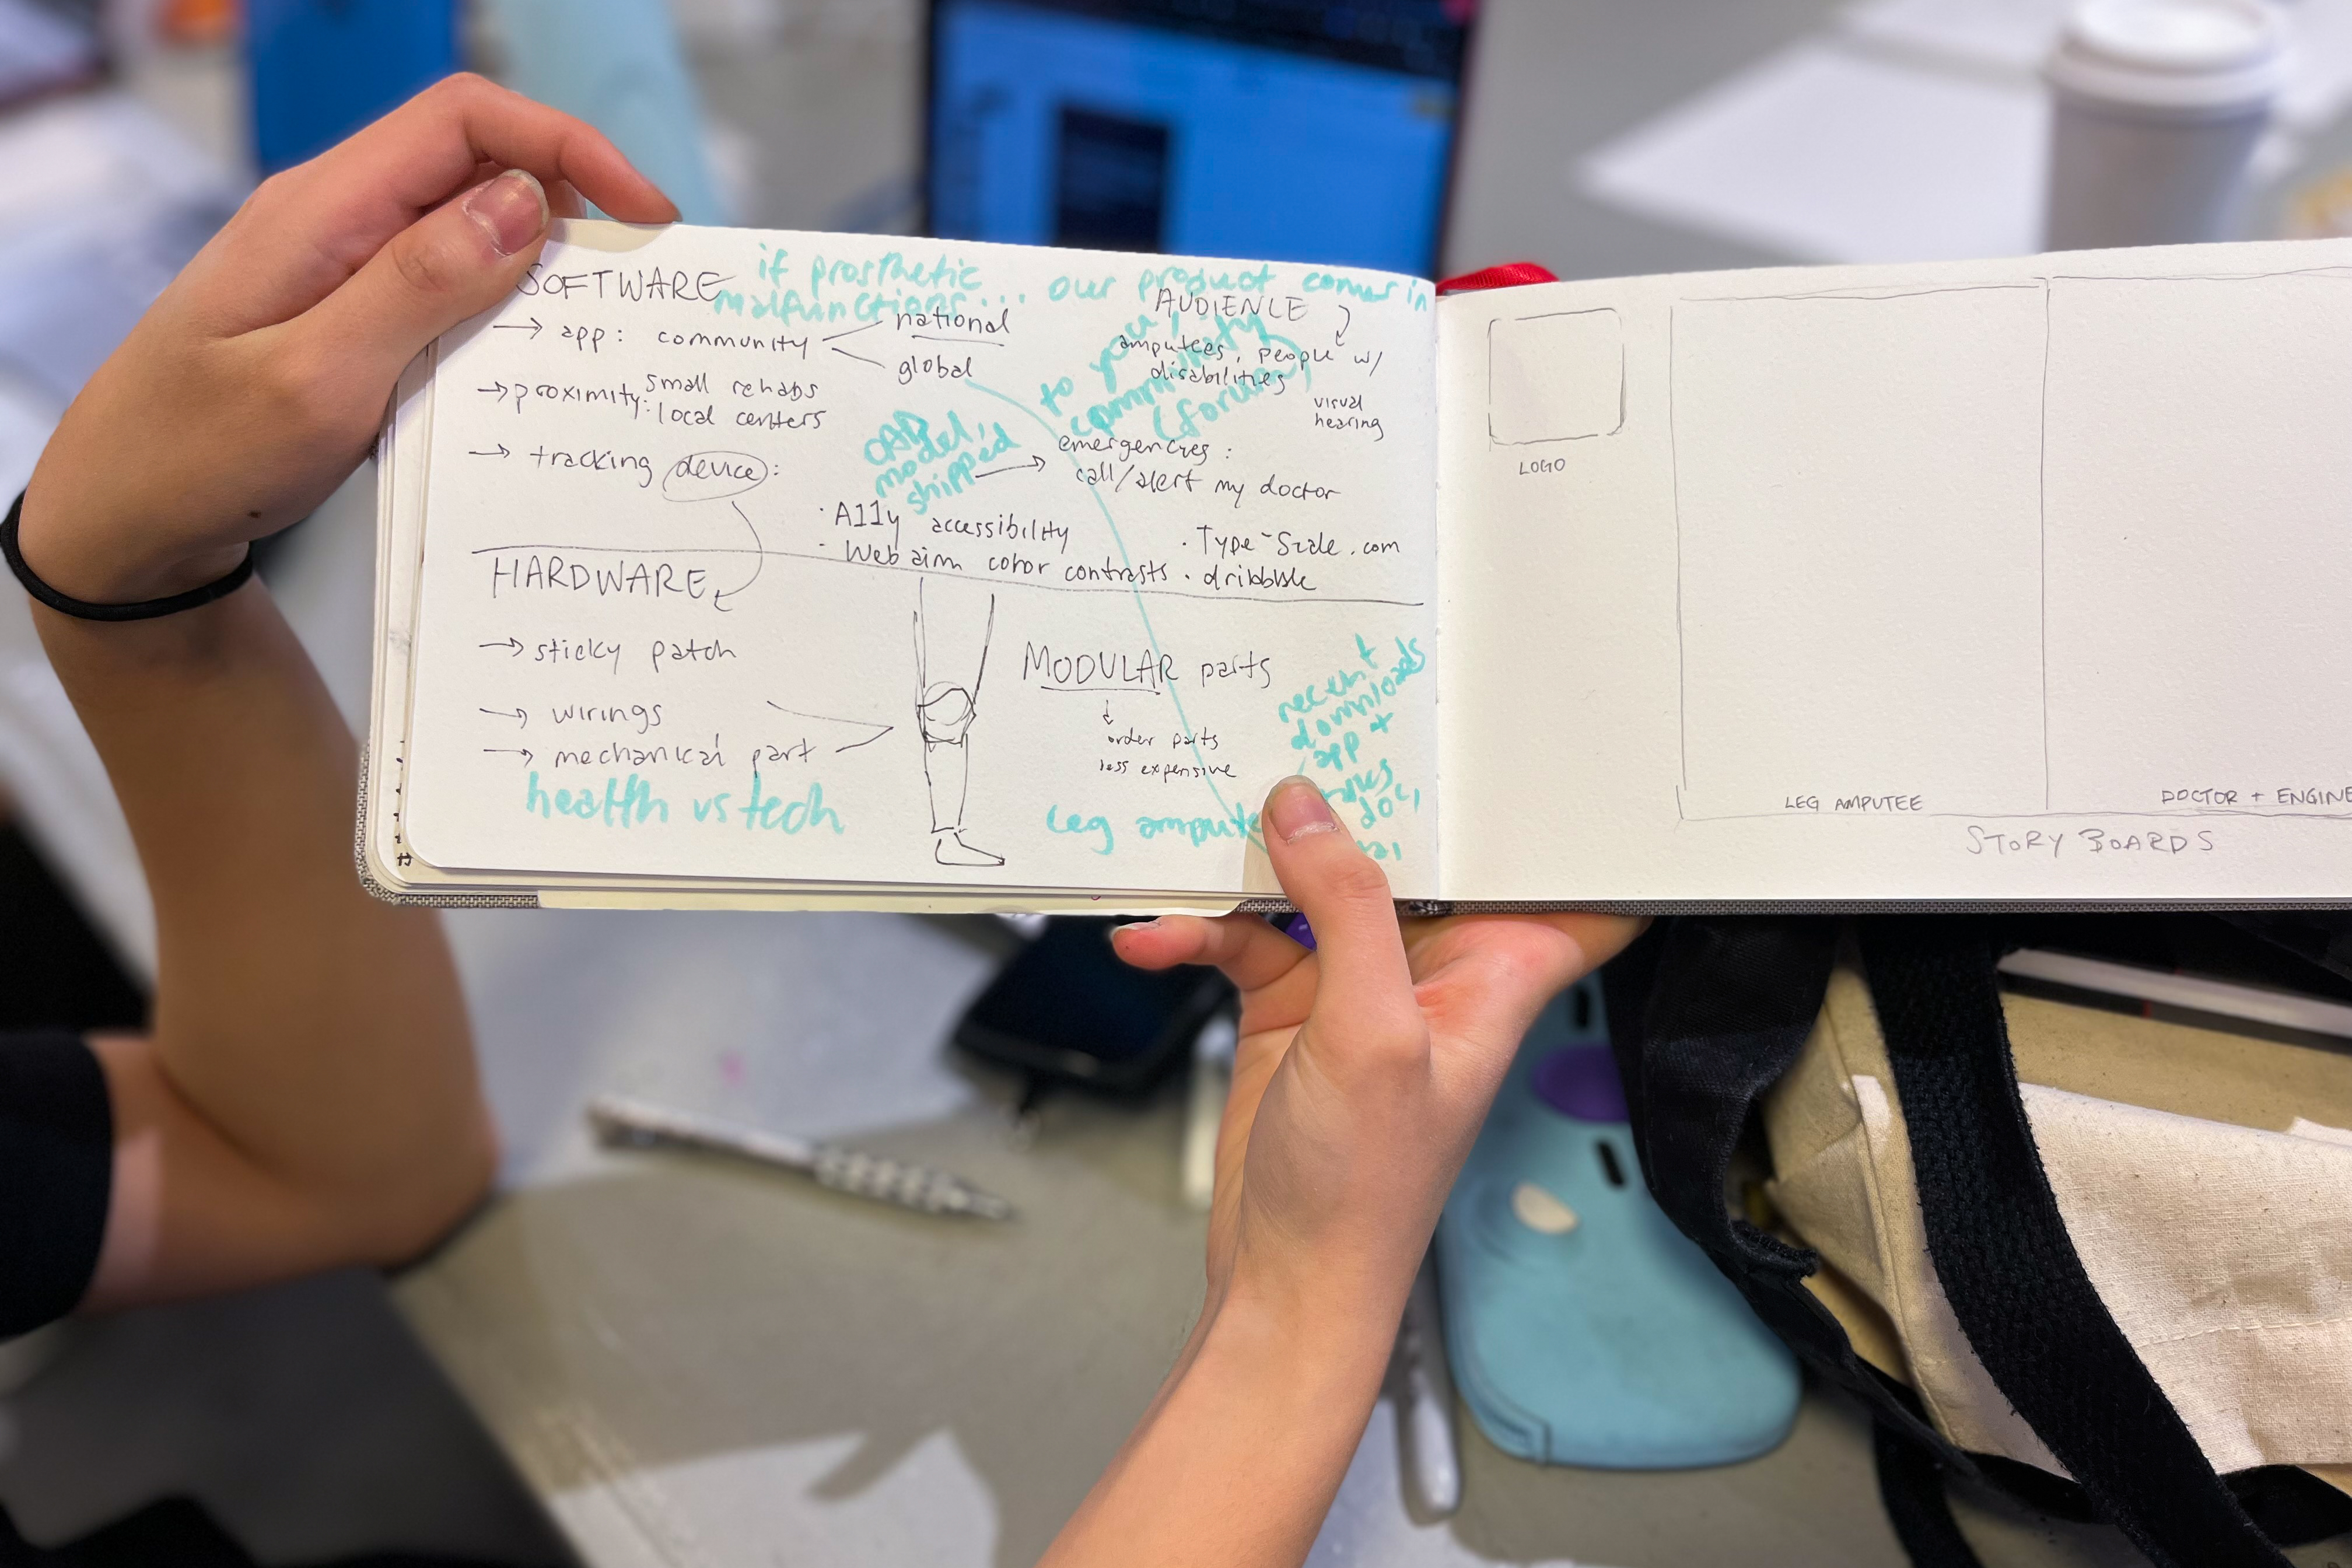 SOFTWARE
if prosthetic
malfunctions... our product comes in
to your
community
(forum)
→ app: community
national
global
→ proximity: small rehabs
local centers
→ tracking device:
AUDIENCE
amputees, people w/
disabilities
visual
hearing
CAD
model,
shipped
→ emergencies:
call/alert my doctor
· A11y accessibility
· Web aim color contrasts
· Type-Scale.com
· dribbble
HARDWARE
→ sticky patch
→ wirings
→ mechanical part
health vs tech
MODULAR parts
↓
order parts
less expensive
leg ampute
downloads
app +
LOGO
LEG AMPUTEE
DOCTOR + ENGINE
STORY BOARDS